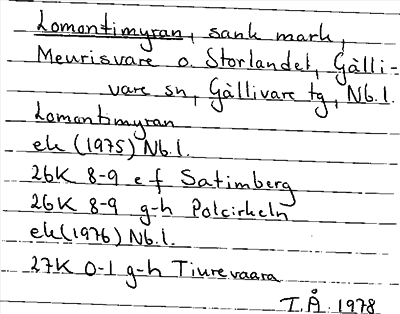 Lomontimyran, sank mark,
Meurisvare o. Storlandet, Gälli-
vare sn, Gällivare tg, Nb.l.
Lomontimyran
ek (1975) Nb.l.
26K 8-9 e f Satimberg
26K 8-9 g-h Polcirkeln
ek (1976) Nb.l.
27K 0-1 g-h Tiurevaara
T.Å. 1978